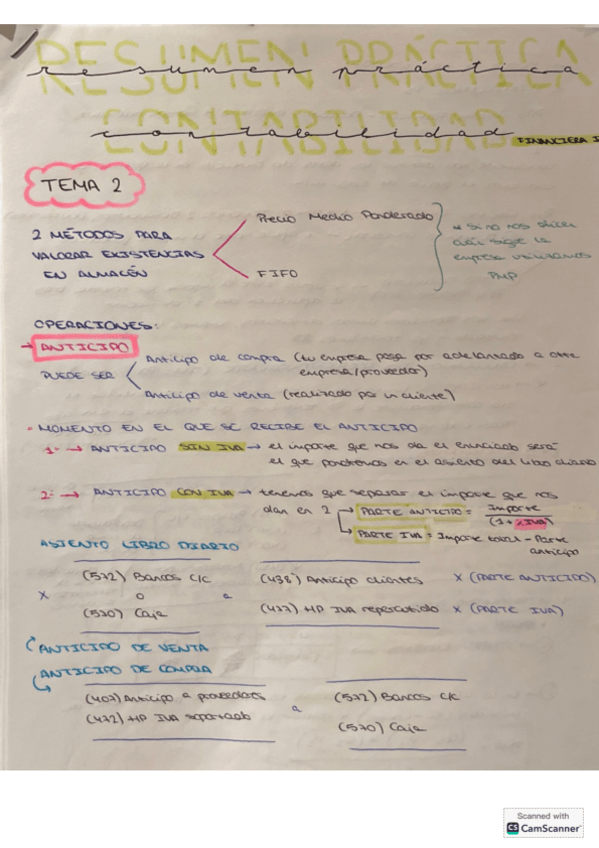 RESUMEN PRÁCTICA
resumen práctica
CONTABILIDAD
contabilidad
FINANCIERA I
TEMA 2
2 MÉTODOS PARA
VALORAR EXISTENCIAS
EN ALMACÉN
Precio Medio Ponderado
FIFO
* Si no nos dicen
cuál sigue la
empresa utilizamos
PMP
OPERACIONES:
→ ANTICIPO
PUEDE SER
Anticipo de compra (tu empresa paga por adelantado a otra
empresa/proveedor)
Anticipo de venta (realizado por un cliente)
- MOMENTO EN EL QUE SE RECIBE EL ANTICIPO
1- → ANTICIPO SIN IVA → el importe que nos da el enunciado será
el que pondremos en el asiento del libro diario
2- → ANTICIPO CON IVA → tenemos que separar el importe que nos
dan en 2 → PARTE ANTICIPO = Importe / (1 + %IVA)
→ PARTE IVA = Importe total - Parte
anticipo
ASIENTO LIBRO DIARIO
(572) Bancos C/C (438) Anticipo clientes X (PARTE ANTICIPO)
X o a
(570) Caja (477) HP IVA repercutido X (PARTE IVA)
ANTICIPO DE VENTA
ANTICIPO DE COMPRA
(407) Anticipo a proveedores (572) Bancos C/C
(472) HP IVA soportado a
(570) Caja
Scanned with
CS CamScanner